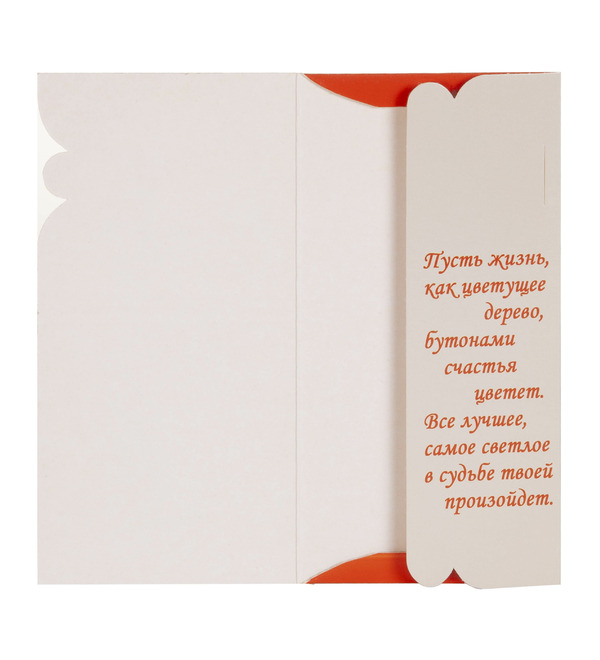 Пусть жизнь,
как цветущее
дерево,
бутонами
счастья
цветет.
Все лучшее,
самое светлое
в судьбе твоей
произойдет.